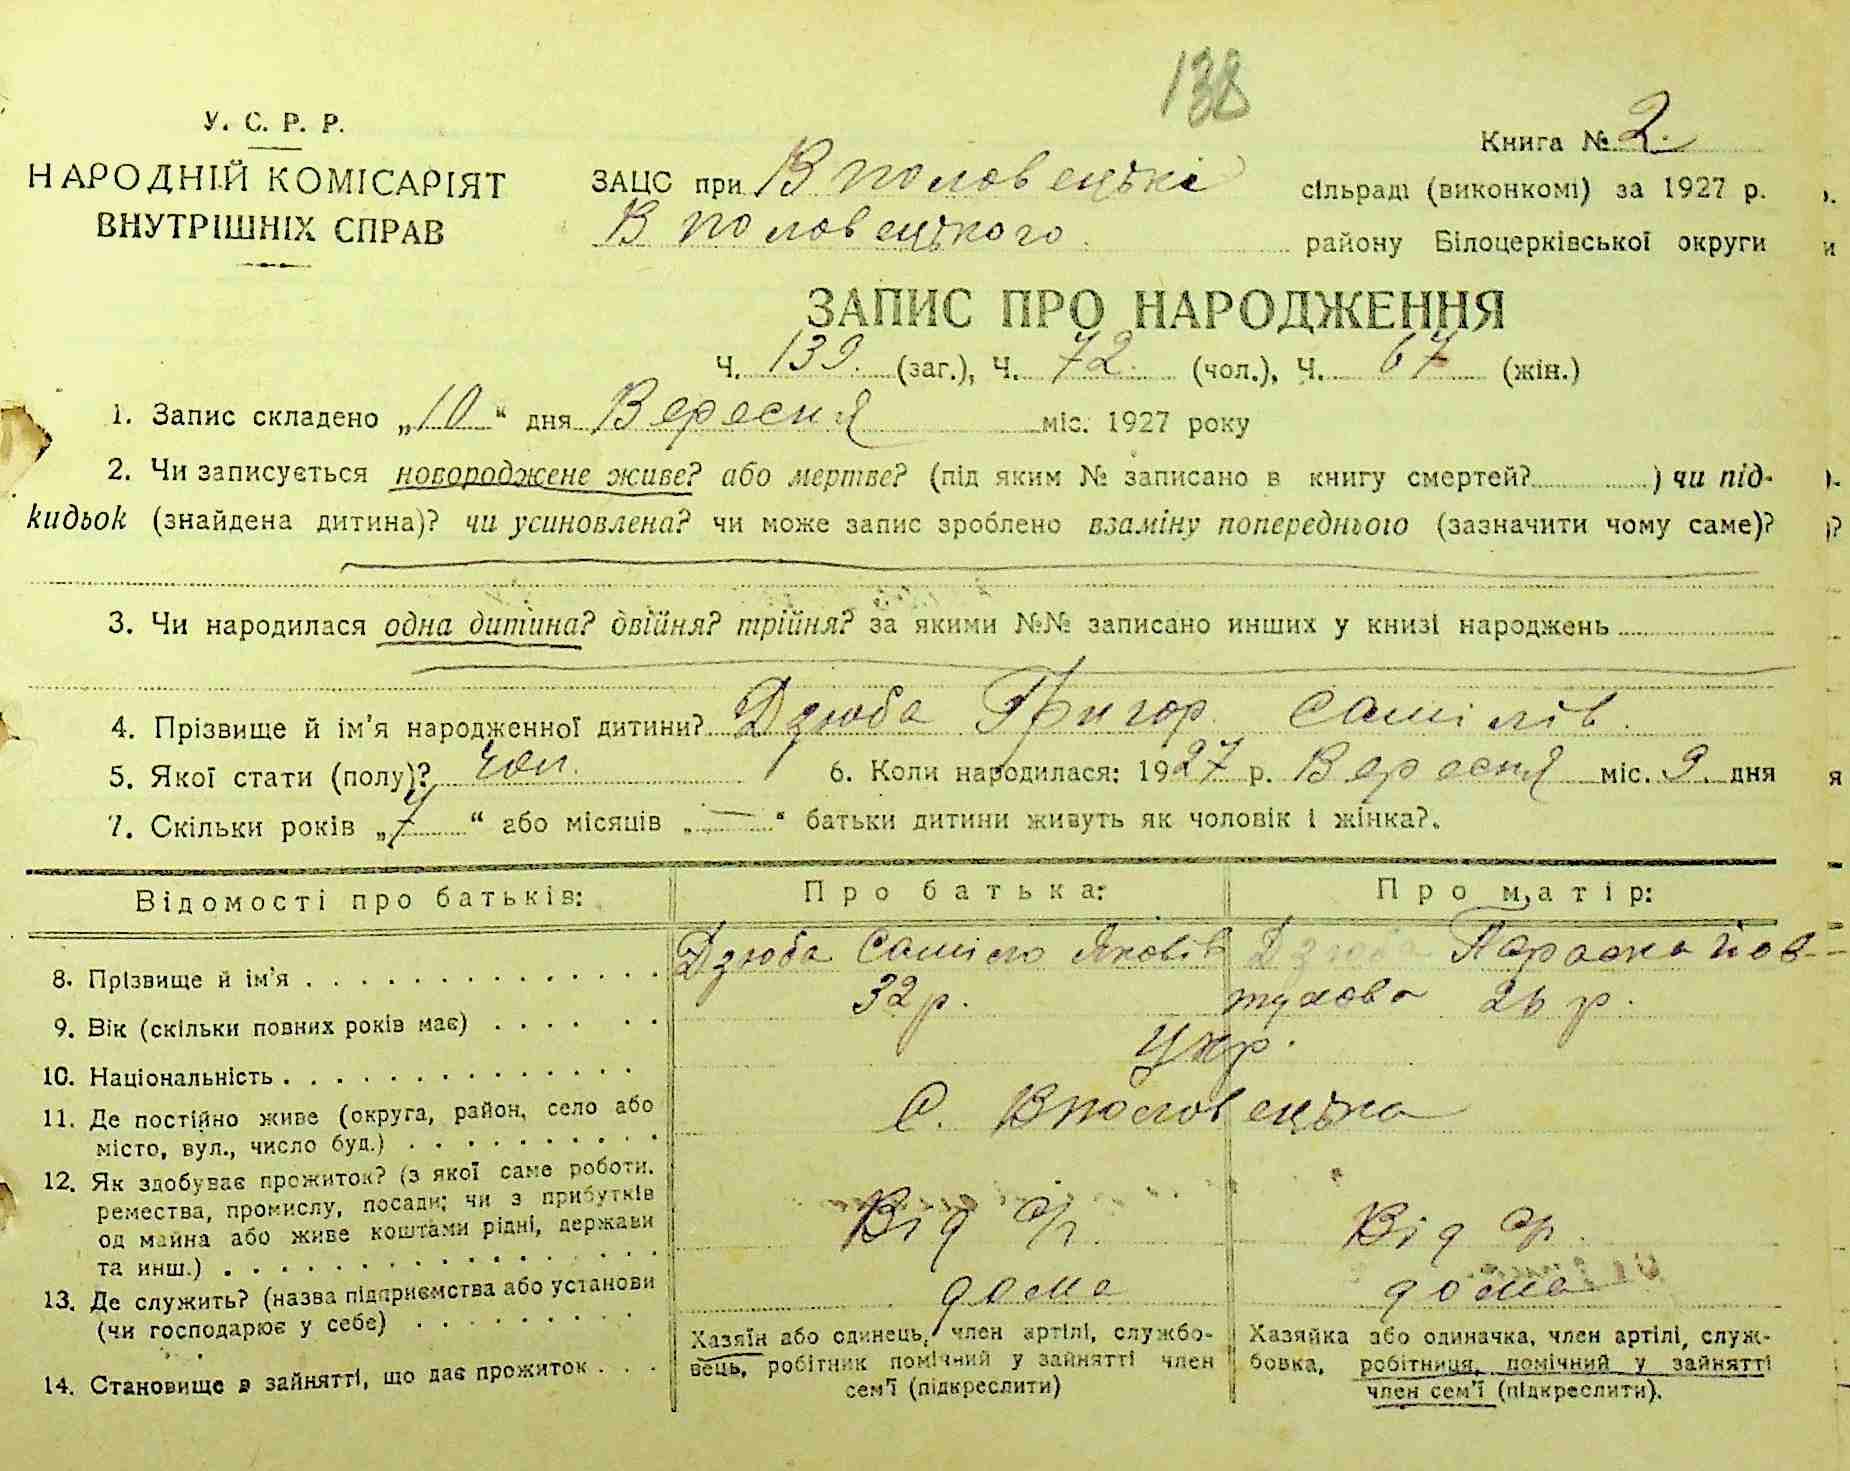 138
У. С. Р. Р.
НАРОДНІЙ КОМІСАРІЯТ
ВНУТРІШНІХ СПРАВ
Книга № 2.
ЗАЦС при Вполовецькі сільраді (виконкомі) за 1927 р.
Вполовецького району Білоцерківської округи
ЗАПИС ПРО НАРОДЖЕННЯ
Ч. 139. (заг.), Ч. 72. (чол.), Ч. 67 (жін.)
1. Запис складено „10“ дня Вересня міс. 1927 року
2. Чи записується новороджене живе? або мертве? (під яким № записано в книгу смертей?) чи під-
кидьок (знайдена дитина)? чи усиновлена? чи може запис зроблено взаміну попереднього (зазначити чому саме)?
3. Чи народилася одна дитина? двійня? трійня? за якими №№ записано инших у книзі народжень
4. Прізвище й ім'я народженної дитини? Дзюба Григор. Самілів.
5. Якої стати (полу)? чол. 6. Коли народилася: 1927 р. Вересня міс. 9. дня
7. Скільки років „7“ або місяців „—“ батьки дитини живуть як чоловік і жінка?.
Відомості про батьків: Про батька: Про матір:
8. Прізвище й ім'я . . . . . . . . . . . . . . Дзюба Саміло Яковів Дзюба Параска Йов-
тухова
9. Вік (скільки повних років має) . . . . . . 32 р. 26 р.
10. Національність . . . . . . . . . . . . . . Укр.
11. Де постійно живе (округа, район, село або
місто, вул., число буд.) . . . . . . . . . . С. Вполовецька
12. Як здобуває прожиток? (з якої саме роботи.
ремества, промислу, посади; чи з прибутків
од майна або живе коштами рідні, держави
та инш.) . . . . . . . . . . . . . . Від Від
13. Де служить? (назва підприємства або установи
(чи господарює у себе) . . . . . . . . . дома дома
14. Становище в зайнятті, що дає прожиток . . .
Хазяїн або одинець, член артілі, службо-
вець, робітник помічний у зайнятті член
сем'ї (підкреслити)
Хазяйка або одиначка, член артілі, служ-
бовка, робітниця, помічний у зайнятті
член сем'ї (підкреслити).